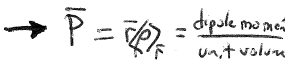 → P̄ = r̄⟨ρ⟩_r̄ = dipole momen / unit volum